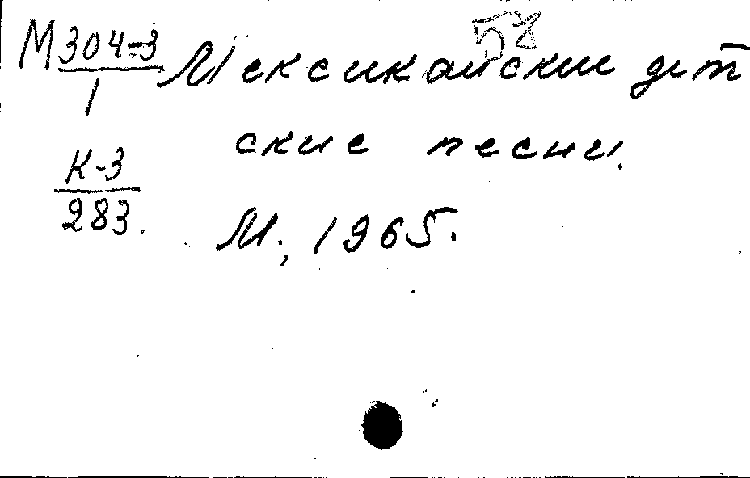 58
М 304-3/1 Мексиканские дет
ские песни.
К-3/283.
М., 1965.